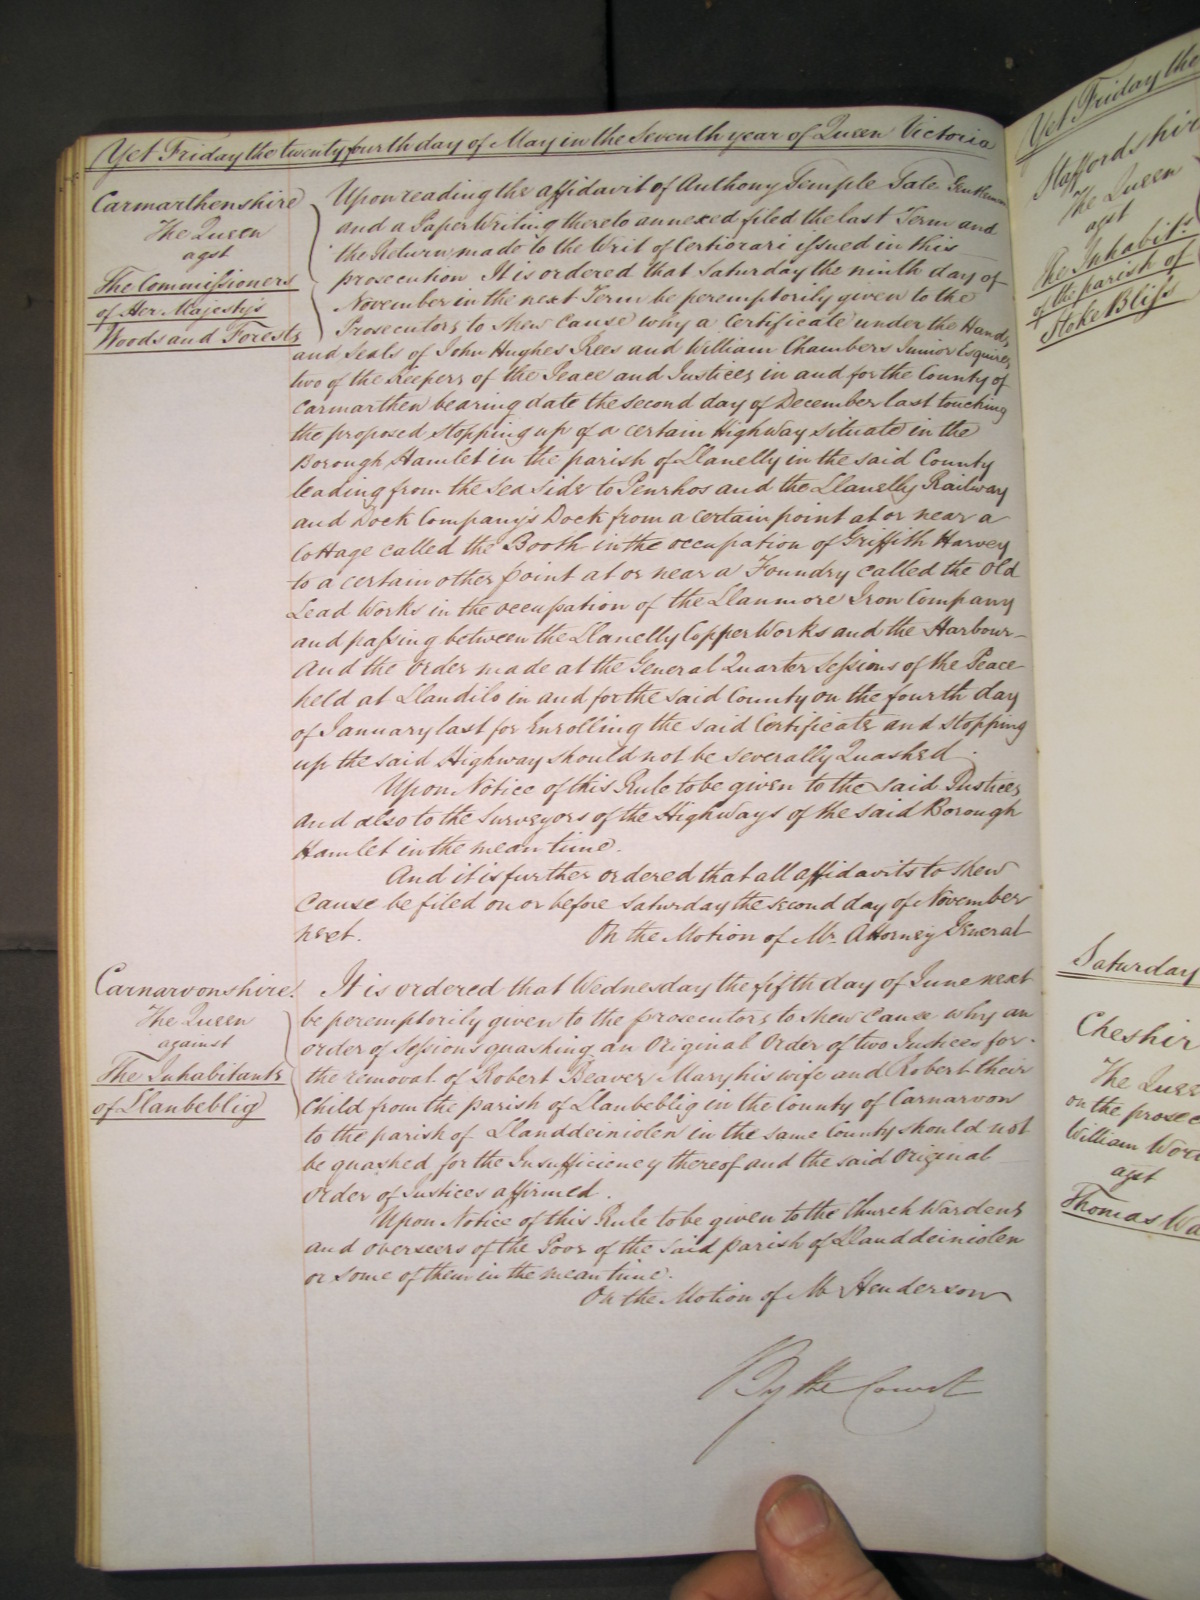 Yet Friday the twenty fourth day of May in the Seventh year of Queen Victoria
Carmarthenshire
The Queen
agst
The Commissioners
of Her Majesty's
Woods and Forests
Upon reading the affidavit of Anthony Temple Tate Gentleman
and a Paper Writing thereto annexed filed the last Term and
the Return made to the Writ of Certiorari issued in this
prosecution It is ordered that Saturday the ninth day of
November in the next Term be peremptorily given to the
Prosecutors to shew Cause why a Certificate under the Hands
and Seals of John Hughes Rees and William Chambers Junior Esquires
two of the Keepers of the Peace and Justices in and for the County of
Carmarthen bearing date the second day of December last touching
the proposed stopping up of a certain Highway situate in the
Borough Hamlet in the parish of Llanelly in the said County
leading from the Sea Side to Penrhos and the Llanelly Railway
and Dock Company's Dock from a certain point at or near a
Cottage called the Booth in the occupation of Griffith Harvey
to a certain other point at or near a Foundry called the Old
Lead Works in the occupation of the Llanmore Iron Company
and passing between the Llanelly Copper Works and the Harbour
And the Order made at the General Quarter Sessions of the Peace
held at Llandilo in and for the said County on the fourth day
of January last for Enrolling the said Certificate and stopping
up the said Highway should not be severally Quashed
Upon Notice of this Rule to be given to the said Justices
and also to the Surveyors of the Highways of the said Borough
Hamlet in the mean time.
And it is further ordered that all affidavits to shew
Cause be filed on or before Saturday the second day of November
next. On the Motion of Mr. Attorney General
Carnarvonshire.
The Queen
against
The Inhabitants
of Llanbeblig
It is ordered that Wednesday the fifth day of June next
be peremptorily given to the prosecutors to shew Cause why an
order of Sessions quashing an Original Order of two Justices for
the removal of Robert Beaver Mary his wife and Robert their
Child from the parish of Llanbeblig in the County of Carnarvon
to the parish of Llanddeiniolen in the same County should not
be quashed for the Insufficiency thereof and the said Original
Order of Justices affirmed.
Upon Notice of this Rule to be given to the Church Wardens
and Overseers of the Poor of the said parish of Llanddeiniolen
or some of them in the mean time.
On the Motion of Mr Henderson
By the Court
Yet Friday the
Staffordshire
The Queen
agst
The Inhabits.
of the parish of
Stoke Bliss
Saturday
Cheshir
The Quee
on the prosec
William Wor
agst
Thomas Wa